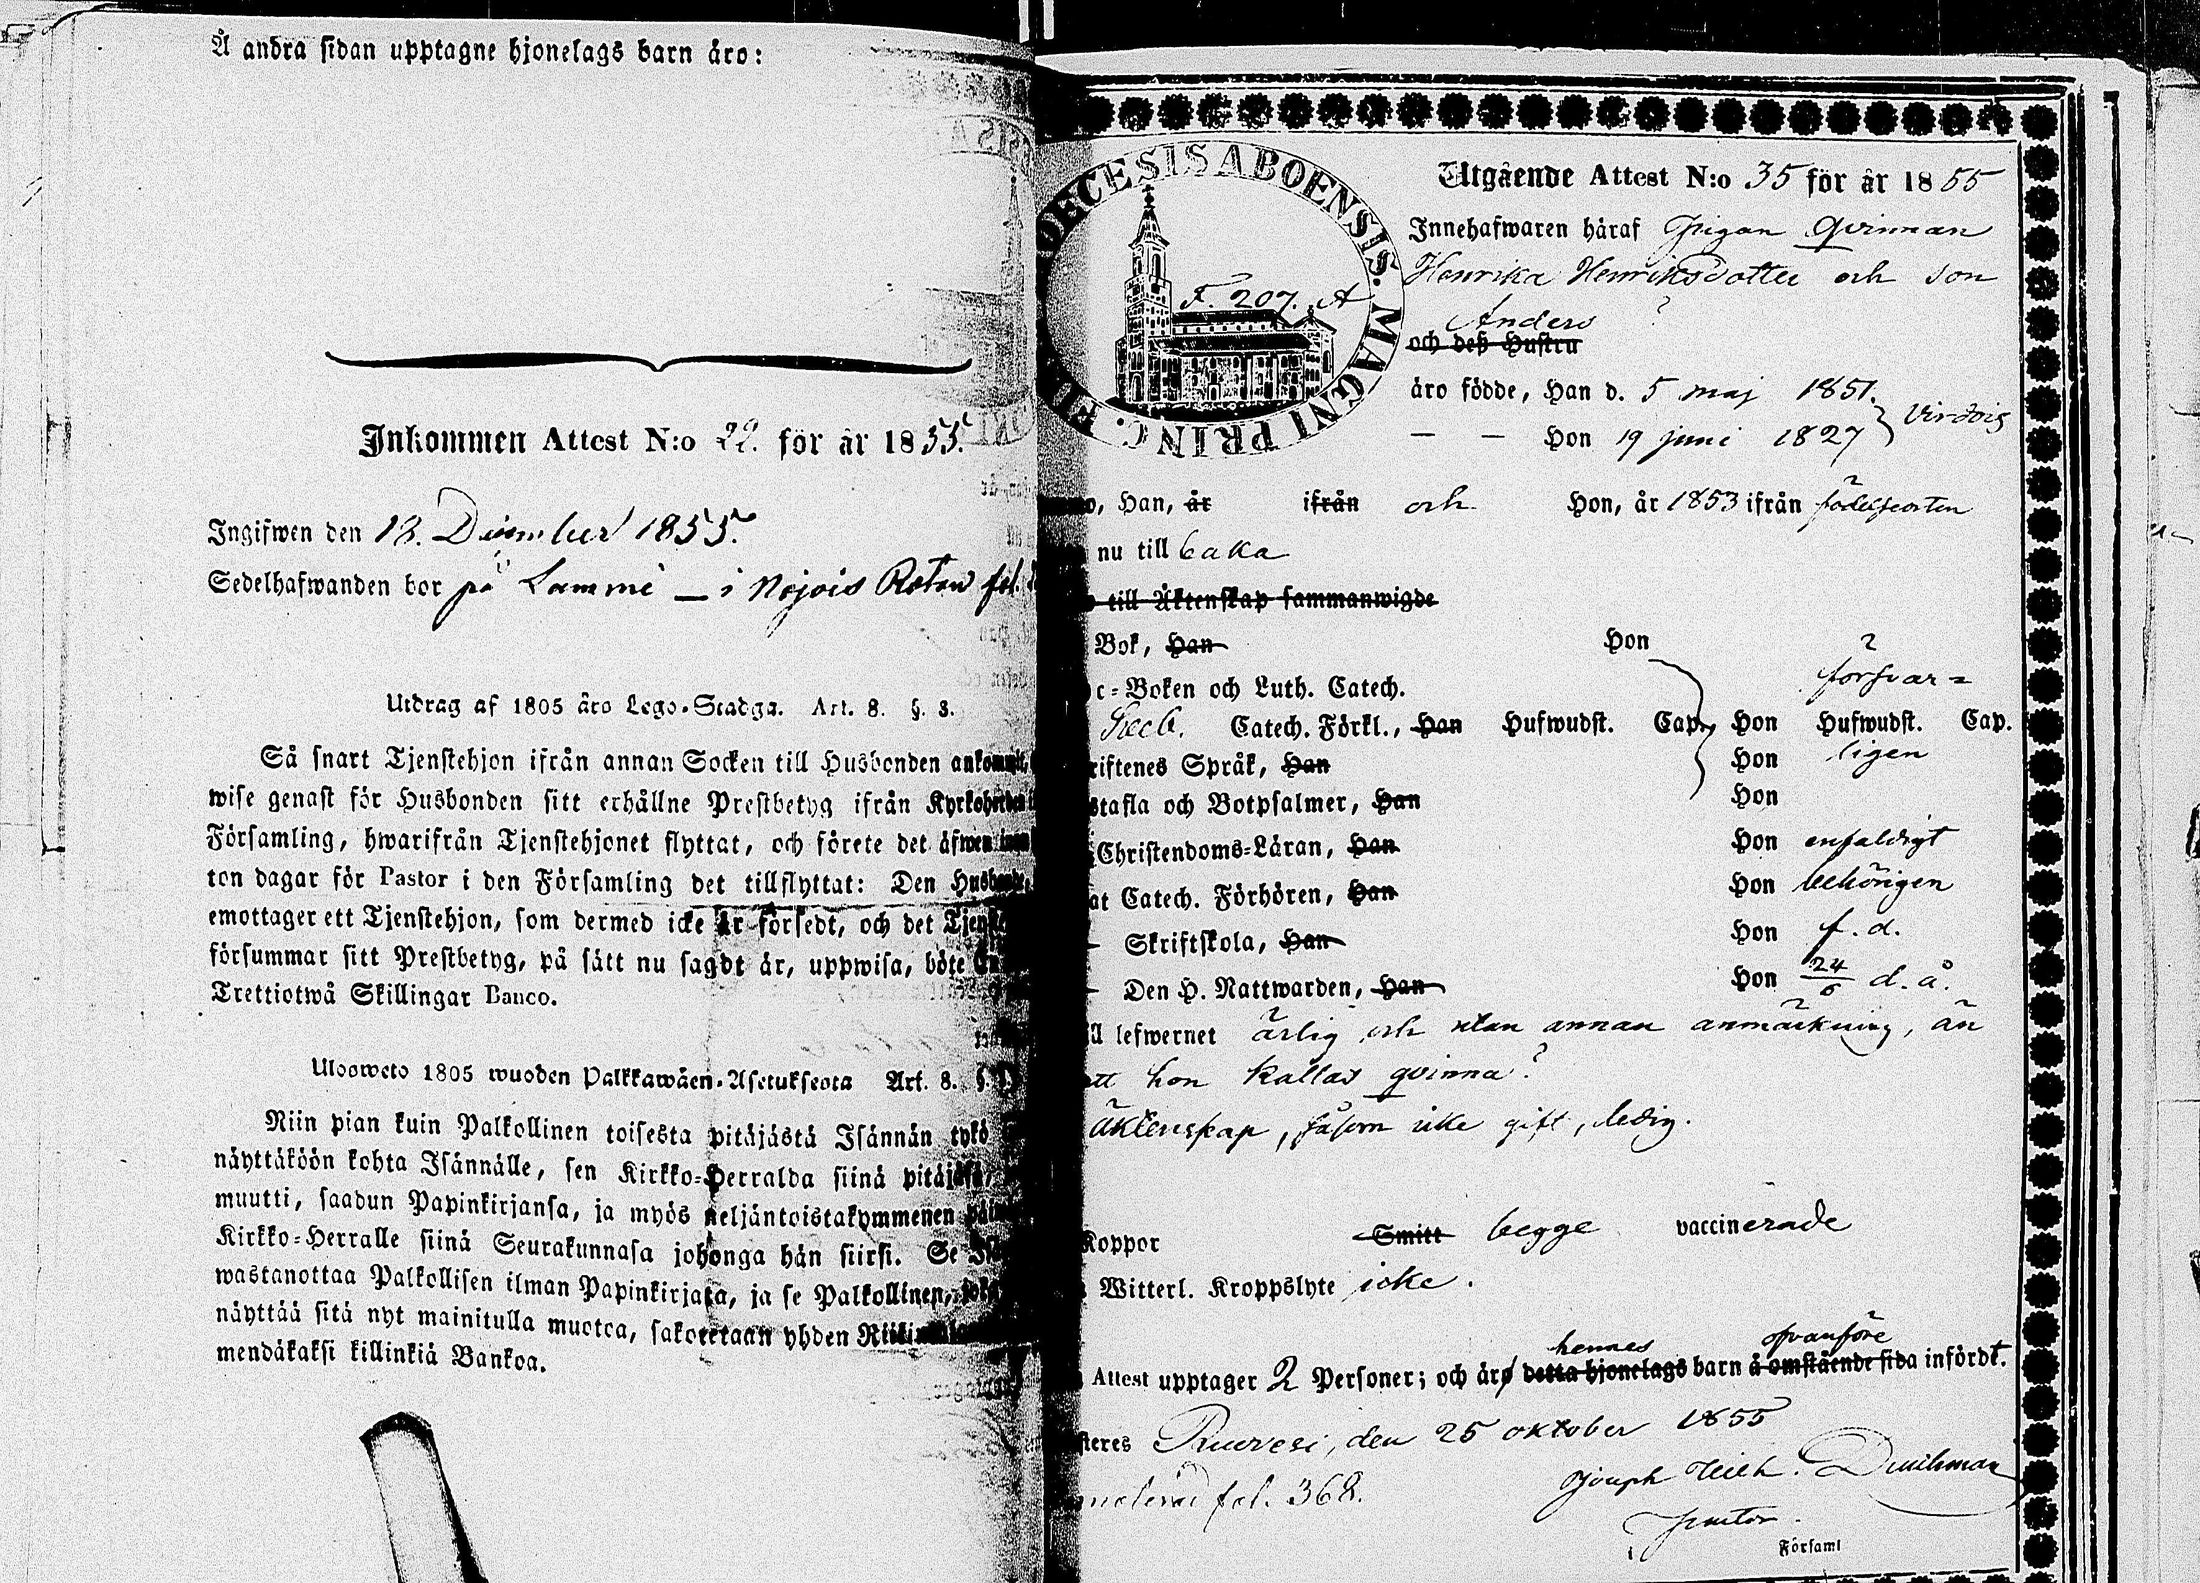 Å andra sidan upptagne hjonelags barn äro:
Inkommen Attest N:o 22. för år 1855.
Ingifwen den 13. December 1855.
Sedelhafwanden bor på Lammi — i Nojois Rotan fol.
Utdrag af 1805 års Lego-Stadga. Art. 8. §. 3.
Så snart Tjenstehjon ifrån annan Socken till Husbonden ankommit,
wise genast för Husbonden sitt erhållne Prestbetyg ifrån Kyrkoherden
Församling, hwarifrån Tjenstehjonet flyttat, och förete det äfwen inom
ton dagar för Pastor i den Församling det tillflyttat: Den Husbonde,
emottager ett Tjenstehjon, som dermed icke är försedt, och det
försummar sitt Prestbetyg, på sätt nu sagdt är, uppwisa, böte
Trettiotwå Skillingar Banco.
Ulosweto 1805 wuoden Palkkawäen-Asetuksesta Art. 8. §.
Niin pian kuin Palkollinen toisesta pitäjästä Isännän tykö
näyttäköön kohta Isännälle, sen Kirkko-Herralda siinä pitäjäsä,
muutti, saadun Papinkirjansa, ja myös neljäntoistakymmenen
Kirkko-Herralle siinä Seurakunnasa johonga hän siirsi. Se
wastanottaa Palkollisen ilman Papinkirjata, ja se Palkollinen,
näyttää sitä nyt mainitulla muotoa, sakotetaan yhden
mendäkaksi killinkiä Bankoa.
DECESIS ABOENSIS. MAGNI PRINC. FI
F. 207. A
Utgående Attest N:o 35 för år 1855
Innehafwaren häraf Pigan Qvinnan
Henrika Henriksdotter och son
Anders
och deß Hustru
äro födde, Han d. 5 maj 1851.
— — Hon 19 juni 1827 } Virdois
Han, år ifrån och Hon, år 1853 ifrån födelseorten
nu till baka
till Äktenskap sammanwigde
Bok, Han Hon
c-Boken och Luth. Catech. försvar=
Sveb. Catech. Förkl., Han Hufwudst. Cap. Hon Hufwudst. Cap.
riftenes Språk, Han Hon ligen
stafla och Botpsalmer, Han Hon
Christendoms-Läran, Han Hon enfaldigt
at Catech. Förhören, Han Hon behörigen
— Skriftskola, Han Hon f. d.
— Den H. Nattwarden, Han Hon 24/6 d. å.
ll lefwernet ärlig och utan annan anmärkning, än
att hon kallas qvinna.
äktenskap, såsom icke gift, ledig.
Koppor Smitt begge vaccinerade
Witterl. Kroppslyte icke.
hennes ofvanföre
Attest upptager 2 Personer; och äro detta hjonelags barn å omstående sida infördt.
steres Ruovesi, den 25 oktober 1855
fol. 368. Joseph Wilh. Durchman
Pastor.
i Församl